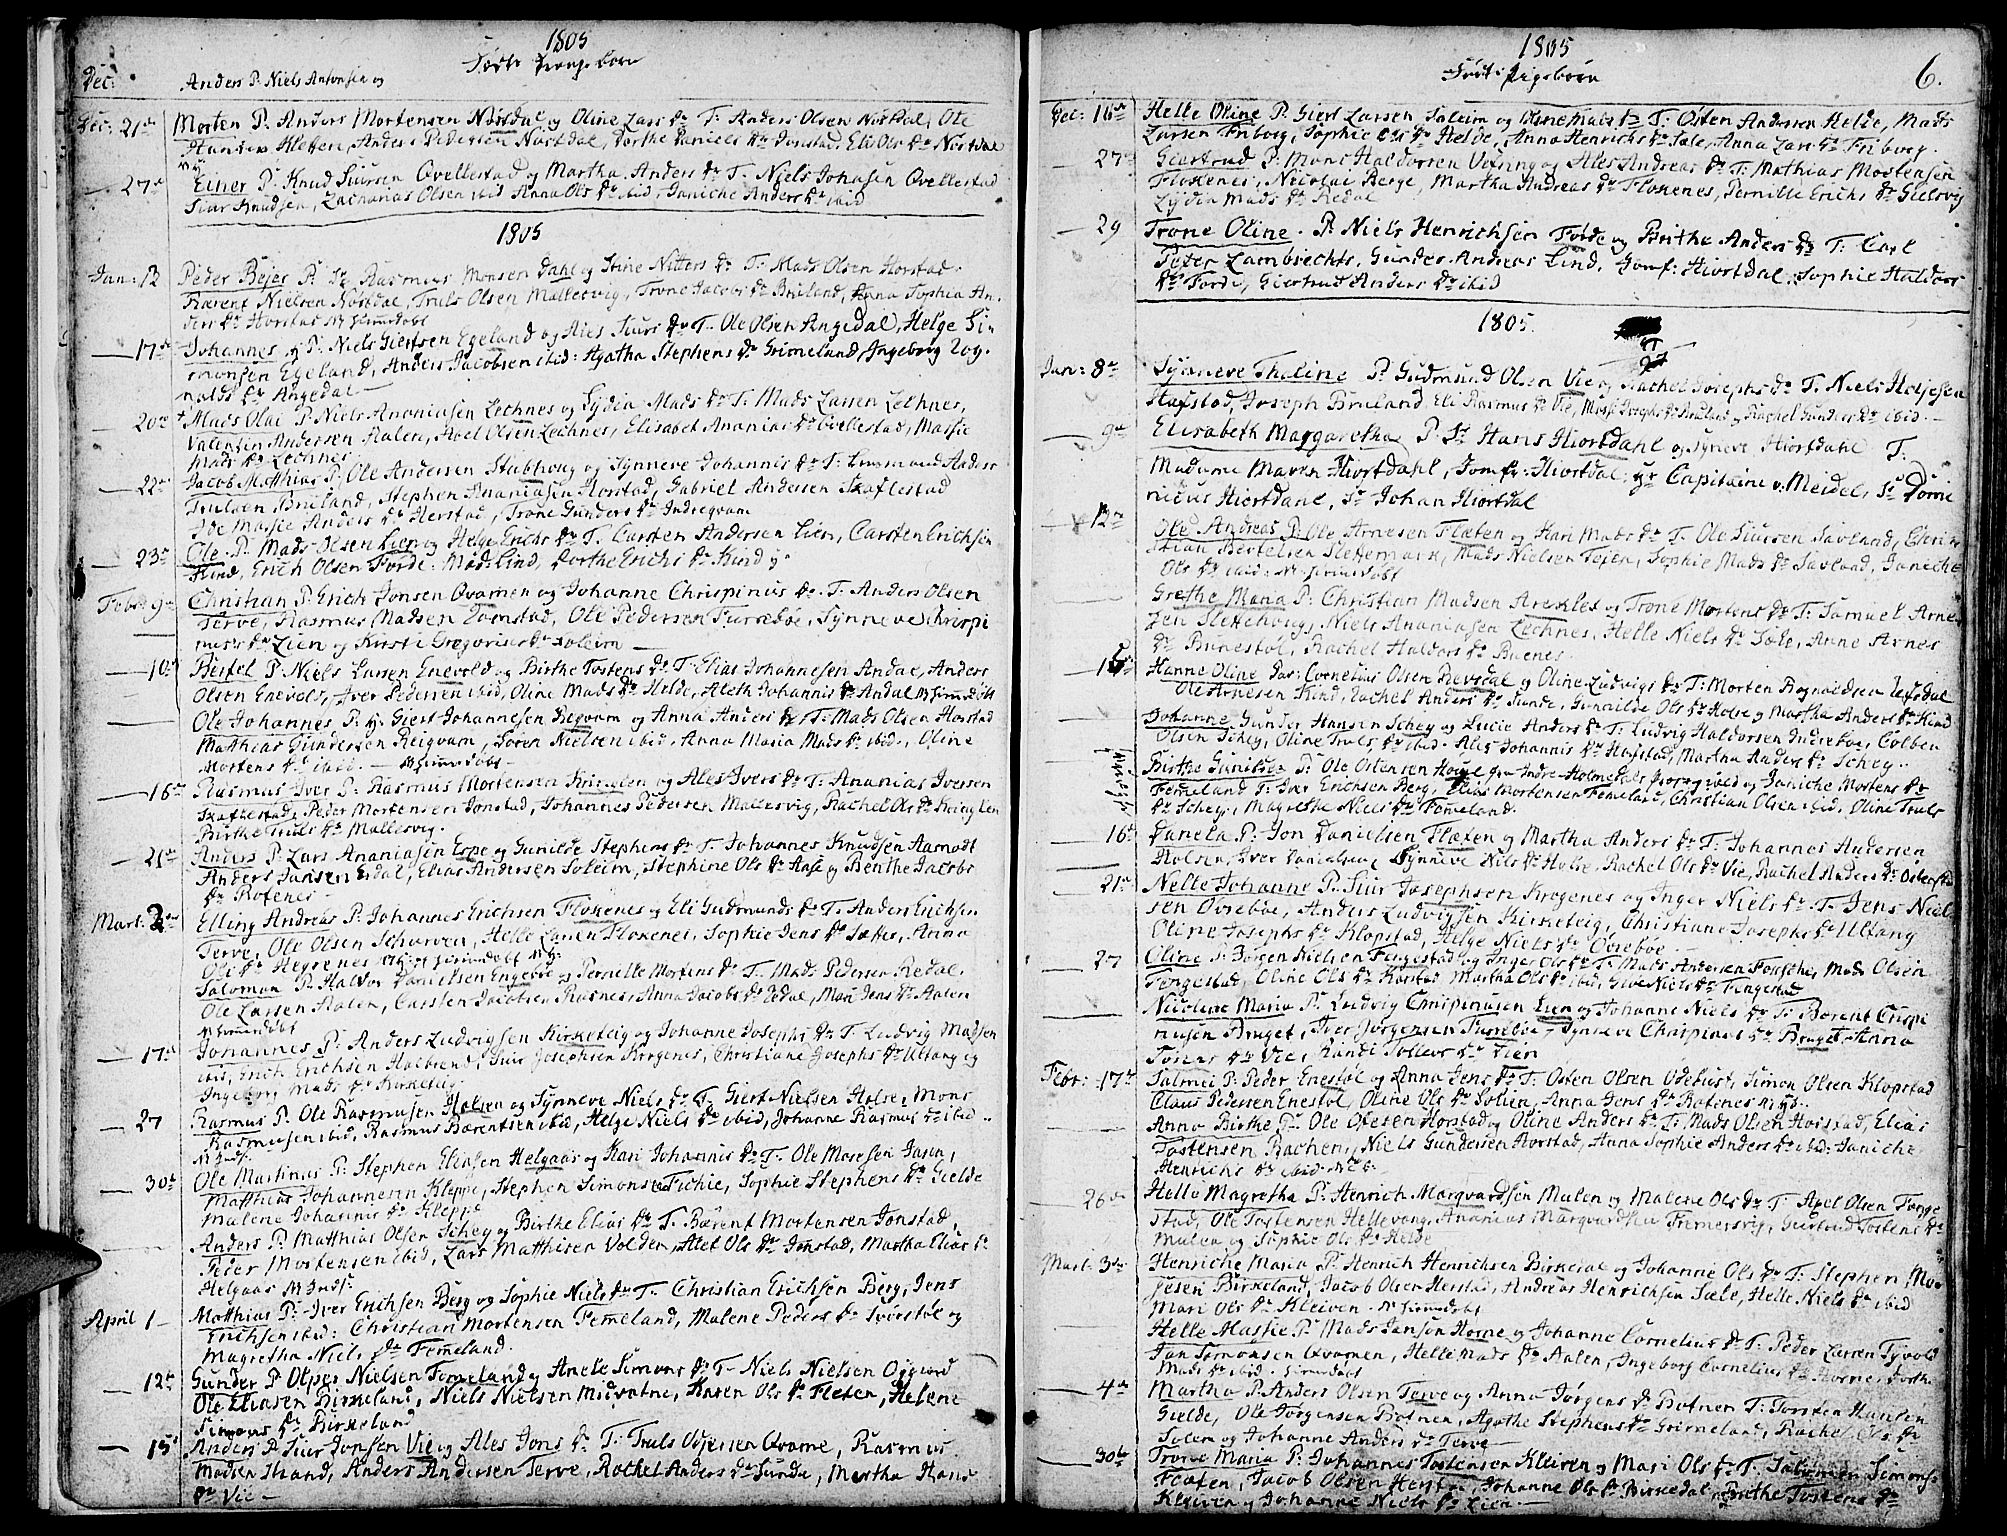 1805
Født Drenge børn
Dec: Anders P. Niels Antonsen og
Dec: 21de Morten P. Anders Mortensen Nøstdal og Oline Lars Dr T. Anders Olsen Nøstdal, Ole
Hansen Kleppen, Anders Pedersen Nøstdal, Dorthe Daniels Dr Jonstad, Eli Ols Dr Nøstdal
27de Einer P. Knud Siursen Qvellestad og Martha Anders Dr T. Niels Johasen Qvellestad
Siur Knudsen, Zacharias Olsen ibid Anna Ols Dr ibid, Janiche Anders Dr ibid
1805
Jan: 13 Peder Bejer P. Sr Rasmus Monsen Dahl og Stine Nitters Dr T. Mads Olsen Horstad
Bærent Nielsen Nøstdal, Truls Olsen Mallesvig, Trone Jacobs Dr Bruland, Anna Sophia An-
ders Dr Horstad N hjemmedøbt
17de Johannes P. Niels Giertsen Egeland og Ales Siurs Dr T. Ole Olsen Angedal, Helge Si-
monsen Egeland, Anders Jacobsen ibid: Agatha Stephens Dr Grimeland, Ingeborg Rog-
nalds Dr Angedal
20de Mads Olai P. Niels Ananiasen Lechnes og Lydia Mads Dr T. Mads Larsen Lechnes,
Valentin Andersen Aalen, Axel Olsen Lechnes, Elisabet Ananias Dr Qvellestad, Massie
Mads Dr Lechnes
22de Jacob Matthias P. Ole Andersen Stubhoug og Synneve Johannis Dr T. Anders
Trulsen Bruland, Stephen Ananiasen Horstad, Gabriel Andersen Skaflestad
Massie Anders Dr Herstad, Trone Gunders Dr Indregvam
23de Ole P. Mads Olsen Lien og Helge Erichs Dr T. Carsten Andersen Lien, Carsten Erichsen
Hind, Erich Olsen Førde, Mad: Lind, Dorthe Erichs Dr Kind
Febr: 9de Christian P. Erich Jonsen Qvamen og Johanne Chrispinus Dr T. Anders Olsen
Terve, Rasmus Madsen Jonstad, Ole Pedersen Furebøe, Synneve Chrispi
nus's Dr Lien og Kirsti Gregorius Dr Soleim
10de Bertel P. Niels Larsen Enevold og Birthe Tostens Dr T. Elias Johannesen Andal, Anders
Olsen Enevold, Iver Pedersen ibid, Oline Mads Dr Helde, Aleth Johannis Dr Andal N hjemmedøbt
Ole Johannes P. Giert Johannesen Reqvam og Anna Anders Dr T. Mads Olsen Horstad
Matthias Gundersen Reigvam, Søren Nielsen ibid, Anna Maria Mads Dr ibid, Oline
Mortens Dr ibid. — N hjemmedøbt
16de Rasmus Iver P. Rasmus Mortensen Kringlen og Ales Ivers Dr T. Ananias Iversen
Skaflestad, Peder Mortensen Jonstad, Johannes Pedersen Mallesvig, Rachel Ols Dr Kringlen
Birthe Truls Dr Mallesvig.
21de Anders P. Lars Ananiasen Espe og Gunilde Stephens Dr T. Johannes Knudsen Aamodt
Anders Jansen Erdal, Elias Andersen Soleim, Stephine Ols Dr Aase og Benthe Jacobs
Dr Rotenes
Mart: 2de Elling Andreas P. Johannes Erichsen Floxenes og Eli Gudmunds Dr T. Anders Erichsen
Terve, Ole Olsen Scharven, Helle Larsen Floxenes, Sophie Jens Dr Sæter, Anna
Ols Dr Hegrenes
Salomon P. Haldor Danielsen Engebø og Pernille Mortens Dr T. Mads Pedersen Redal,
Ole Larsen Aalen, Carsten Jacobsen Rasnes, Anna Jacobs Dr Redal, Mari Jens Dr Aalen
N hjemmedøbt
17de Johannes P. Anders Ludvigsen Kirketeig og Johanne Josephs Dr T. Ludvig Madsen
ibid, Erich Erichsen Halbrend, Siur Josephsen Krogenes, Christiane Josephs Dr Ultang og
Ingeborg Mads Dr Kirketeig
27 Rasmus P. Ole Rasmusen Holsen og Synneve Niels Dr T. Giert Nielsen Holsen, Mons
Rasmusen ibid, Rasmus Bærentsen ibid, Helge Niels Dr ibid, Johanne Rasmus Dr ibid
30de Ole Martinus P. Stephen Eliasen Helgaas og Kari Johannis Dr T. Ole Mosesen
Matthias Johannesen Kleppe, Stephen Simonsen Fichie, Sophie Stephens Dr Gielde
Malene Johannis Dr Kleppe
Anders P. Matthias Olsen Schey og Birthe Elias Dr T. Bærent Mortensen Jonstad,
Peder Mortensen ibid, Lars Matthisen Volden, Alet Ols Dr Jonstad, Martha Elias Dr
Helgaas
April 1 Matthias P. Iver Erichsen Berg og Sophie Niels Dr T. Christian Erichsen Berg, Jens
Erichsen ibid: Christian Mortensen Femeland, Malene Peders Dr Svorstøl og
Magretha Niels Dr Femeland.
12te Gunder P. Olper Nielsen Femeland og Anele Simons Dr T. Niels Nielsen
Ole Eliasen Birkeland, Niels Nielsen Midvatne, Karen Ols Dr Flæten, Helene
Simons Dr Birkeland
15de Anders P. Siur Jonsen Vie og Ales Jons Dr T. Truls Qvame, Rasmus
Madsen Strand, Anders Andersen Terve, Rachel Anders Dr Sunde, Martha Hans
Dr Vie —
1805
Født Pigebørn
6.
Dec: 16de Helle Oline P. Giert Larsen Soleim og Oline Mads Dr T. Østen Andersen Helde, Mads
Larsen Friborg, Sophie Ols Dr Helde, Anna Henrichs Dr Sæle, Anna Lars Dr Friborg.
27de Giertrud P. Mons Haldorsen Vefring og Ales Andreas Dr T. Mathias Mortensen
Floxenes, Nicolai Berge, Martha Andreas Dr Floxenes, Pernille Erichs Dr Gielsvig
Lydia Mads Dr Redal
29 Trone Oline. P. Niels Henrichsen Førde og Brithe Anders Dr T. Carl
Peter Lambrechts, Gunder Andreas Lind, Jomf: Hiortdal, Sophie Haldors
Dr Førde, Giertrud Anders Dr ibid
1805.
Jan: 8de Synneve Thaline P. Gudmund Olsen Vie og Rachel Josephs Dr T. Niels Holjesen
Hafstad, Joseph Bruland, Eli Rasmus Dr Vie, Rachel Gunders Dr ibid —
9de Elisabeth Margaretha P. Sr Hans Hiortdahl og Synneve Hiortdahl T.
Madame Maren Hiortdahl, Jomfr: Hiortdal, Hr Capitaine v: Meidel, Sr Domi
nicus Hiortdahl, Sr Johan Hiortdal
12te Ole Andreas P. Ole Arnesen Flæten og Kari Mads Dr T. Ole Siursen Savland, Chri
stian Bertelsen Slettemark, Mads Nielsen Teien, Sophie Mads Dr Savland, Janiche
Ols Dr ibid: N. hjemmedøbt
Grethe Maria P. Christian Madsen Areklet og Trone Mortens Dr T. Samuel Arne
sen Slettehoug, Niels Ananiasen Lechnes, Helle Niels Dr Sæle, Anne Arnes
Dr Bunestøl, Rachel Haldors Dr Buenes
Hanne Oline Par: Cornelius Olsen Refsdal og Oline Ludvigs Dr T. Morten Rognaldsen Refsdal
Ole Arnesen Kind, Rachel Anders Dr Sunde, Gunnilde Ols Dr Holse og Martha Anders Dr Kind
Johanne Gunder Hansen Schey og Lucie Anders Dr T. Ludvig Haldorsen Indrebøe, Colben
Olsen Schey, Oline Truls Dr ibid. Ales Johannis Dr Hafstad, Martha Anders Dr Schey..
Birthe Gunilde P. Ole Ostensen Houge fra Indre-Holmedals præstegield og Janiche Mortens Dr
Femeland T. Iver Erichsen Berg, Elias Mortensen Femeland, Christian Olsen ibid, Oline Truls
Dr Schey, Magrethe Niels Dr Femeland.
16de Panela P. Jon Danielsen Flæten og Martha Anders Dr T. Johannes Andersen
Holsen, Iver Danielsen, Synneve Nils Dr Holse, Rachel Ols Dr Vie, Rachel Anders Dr
21de Nelle Johanne P. Siur Josephsen Krogenes og Inger Niels Dr T. Jens Niel
sen Øvrebøe, Anders Ludvigsen Kirketeig, Christiane Josephs Dr Ultang
Oline Josephs Dr Klopstad, Helge Niels Dr Øvrebøe
27 Oline P. Børgen Nielsen Fengestad og Inger Ols Dr T. Mads Andersen, Mads Olsen
Fengestad, Oline Ols Dr Karstad, Martha Ols Dr ibid, Niels Dr Fengestad
Nicoline Maria P. Ludvig Chrispinusen Lien og Johanne Niels Dr T. Bærent Crispi
nusen Bruget, Iver Jørgensen Furebøe, Synneve Chrispinus Dr Bruget, Anna
Dr Vie, Randi Tollevs Dr Lien
Febr: 17de Salmei P. Peder Enestøl og Anna Jens Dr T. Osten Olsen Odehust, Simon Olsen Klopstad
Claus Pedersen Enestøl, Oline Ols Dr Solein, Anna Jens Dr Rotenes
Anna Birthe P. Ole Olesen Horstad og Oline Anders Dr T. Mads Olsen Horstad, Elias
Tostensen Rachen, Niels Gundersen Horstad, Anna Sophie Anders Dr ibid: Janiche
Henrichs Dr ibid
26de Helle Magretha P. Henrich Marqvardsen Mulen og Malene Ols Dr T. Axel Olsen Fænge
stad, Ole Tostensen Hellevang, Ananias Marqvardsen Fremersvig, Giertrud Tostens Dr
Mulen og Sophie Ols Dr Helde
Mart: 3de Henriche Maria P. Henrich Henrichsen Birkedal og Johanne Ols Dr T. Stephen Mo-
sesen Birkeland, Jacob Olsen Herstad, Andreas Henrichsen Sæle, Helle Niels Dr ibid
Mari Ols Dr Kleiven. N hjemmedøbt
Helle Massie P. Mads Janson Horne og Johanne Cornelius Dr T. Peder Larsen Tyvold
Jan Simonsen Qvamen, Helle Mads Dr Aalen, Ingeborg Cornelius Dr Horne, Dorthe
Mads Dr ibid. hjemmedøbt
4de Martha P. Anders Olsen Terve og Anna Jørgens Dr Botnen T. Torsten Hansen
Gielde, Ole Jørgensen Botnen, Agathe Stephens Dr Grimeland, Rachel Ols Dr
Solem og Johanne Anders Dr Terve —
30de Trone Maria P. Johannes Tostensen Kleiven og Mari Ols Dr T. Salomon Simons:
Flæten, Jacob Olsen Herstad, Johanne Ols Dr Birkedal, Brithe Tostens Dr
Kleiven og Johanne Niels Dr Lien. —